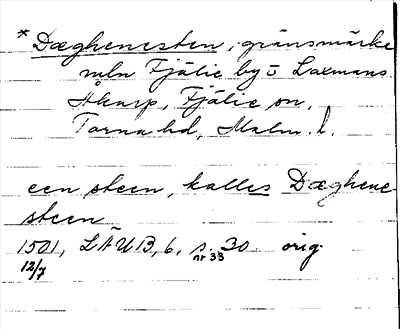 * Dæghenesten, gränsmärke
mln Fjälie by o Laxmans
Åkarp, Fjälie sn,
Torna hd, Malm. l.
een steen, kalles Dæghene-
steen
1501, LÄUB, 6, s. 30 orig.
12/7 nr 33